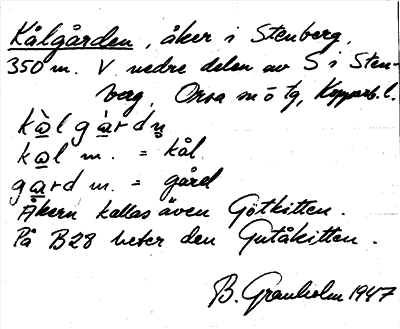 Kålgården, åker i Stenberg,
350 m. V nedre delen av S i Sten-
berg, Orsa sn ö tg, Kopparb. l.
kàl gàrdn̥
kal m. = kål
gard m. = gård
Åkern kallas även Götkitten.
På B28 heter den Gutåkitten.
B. Granholm 1947